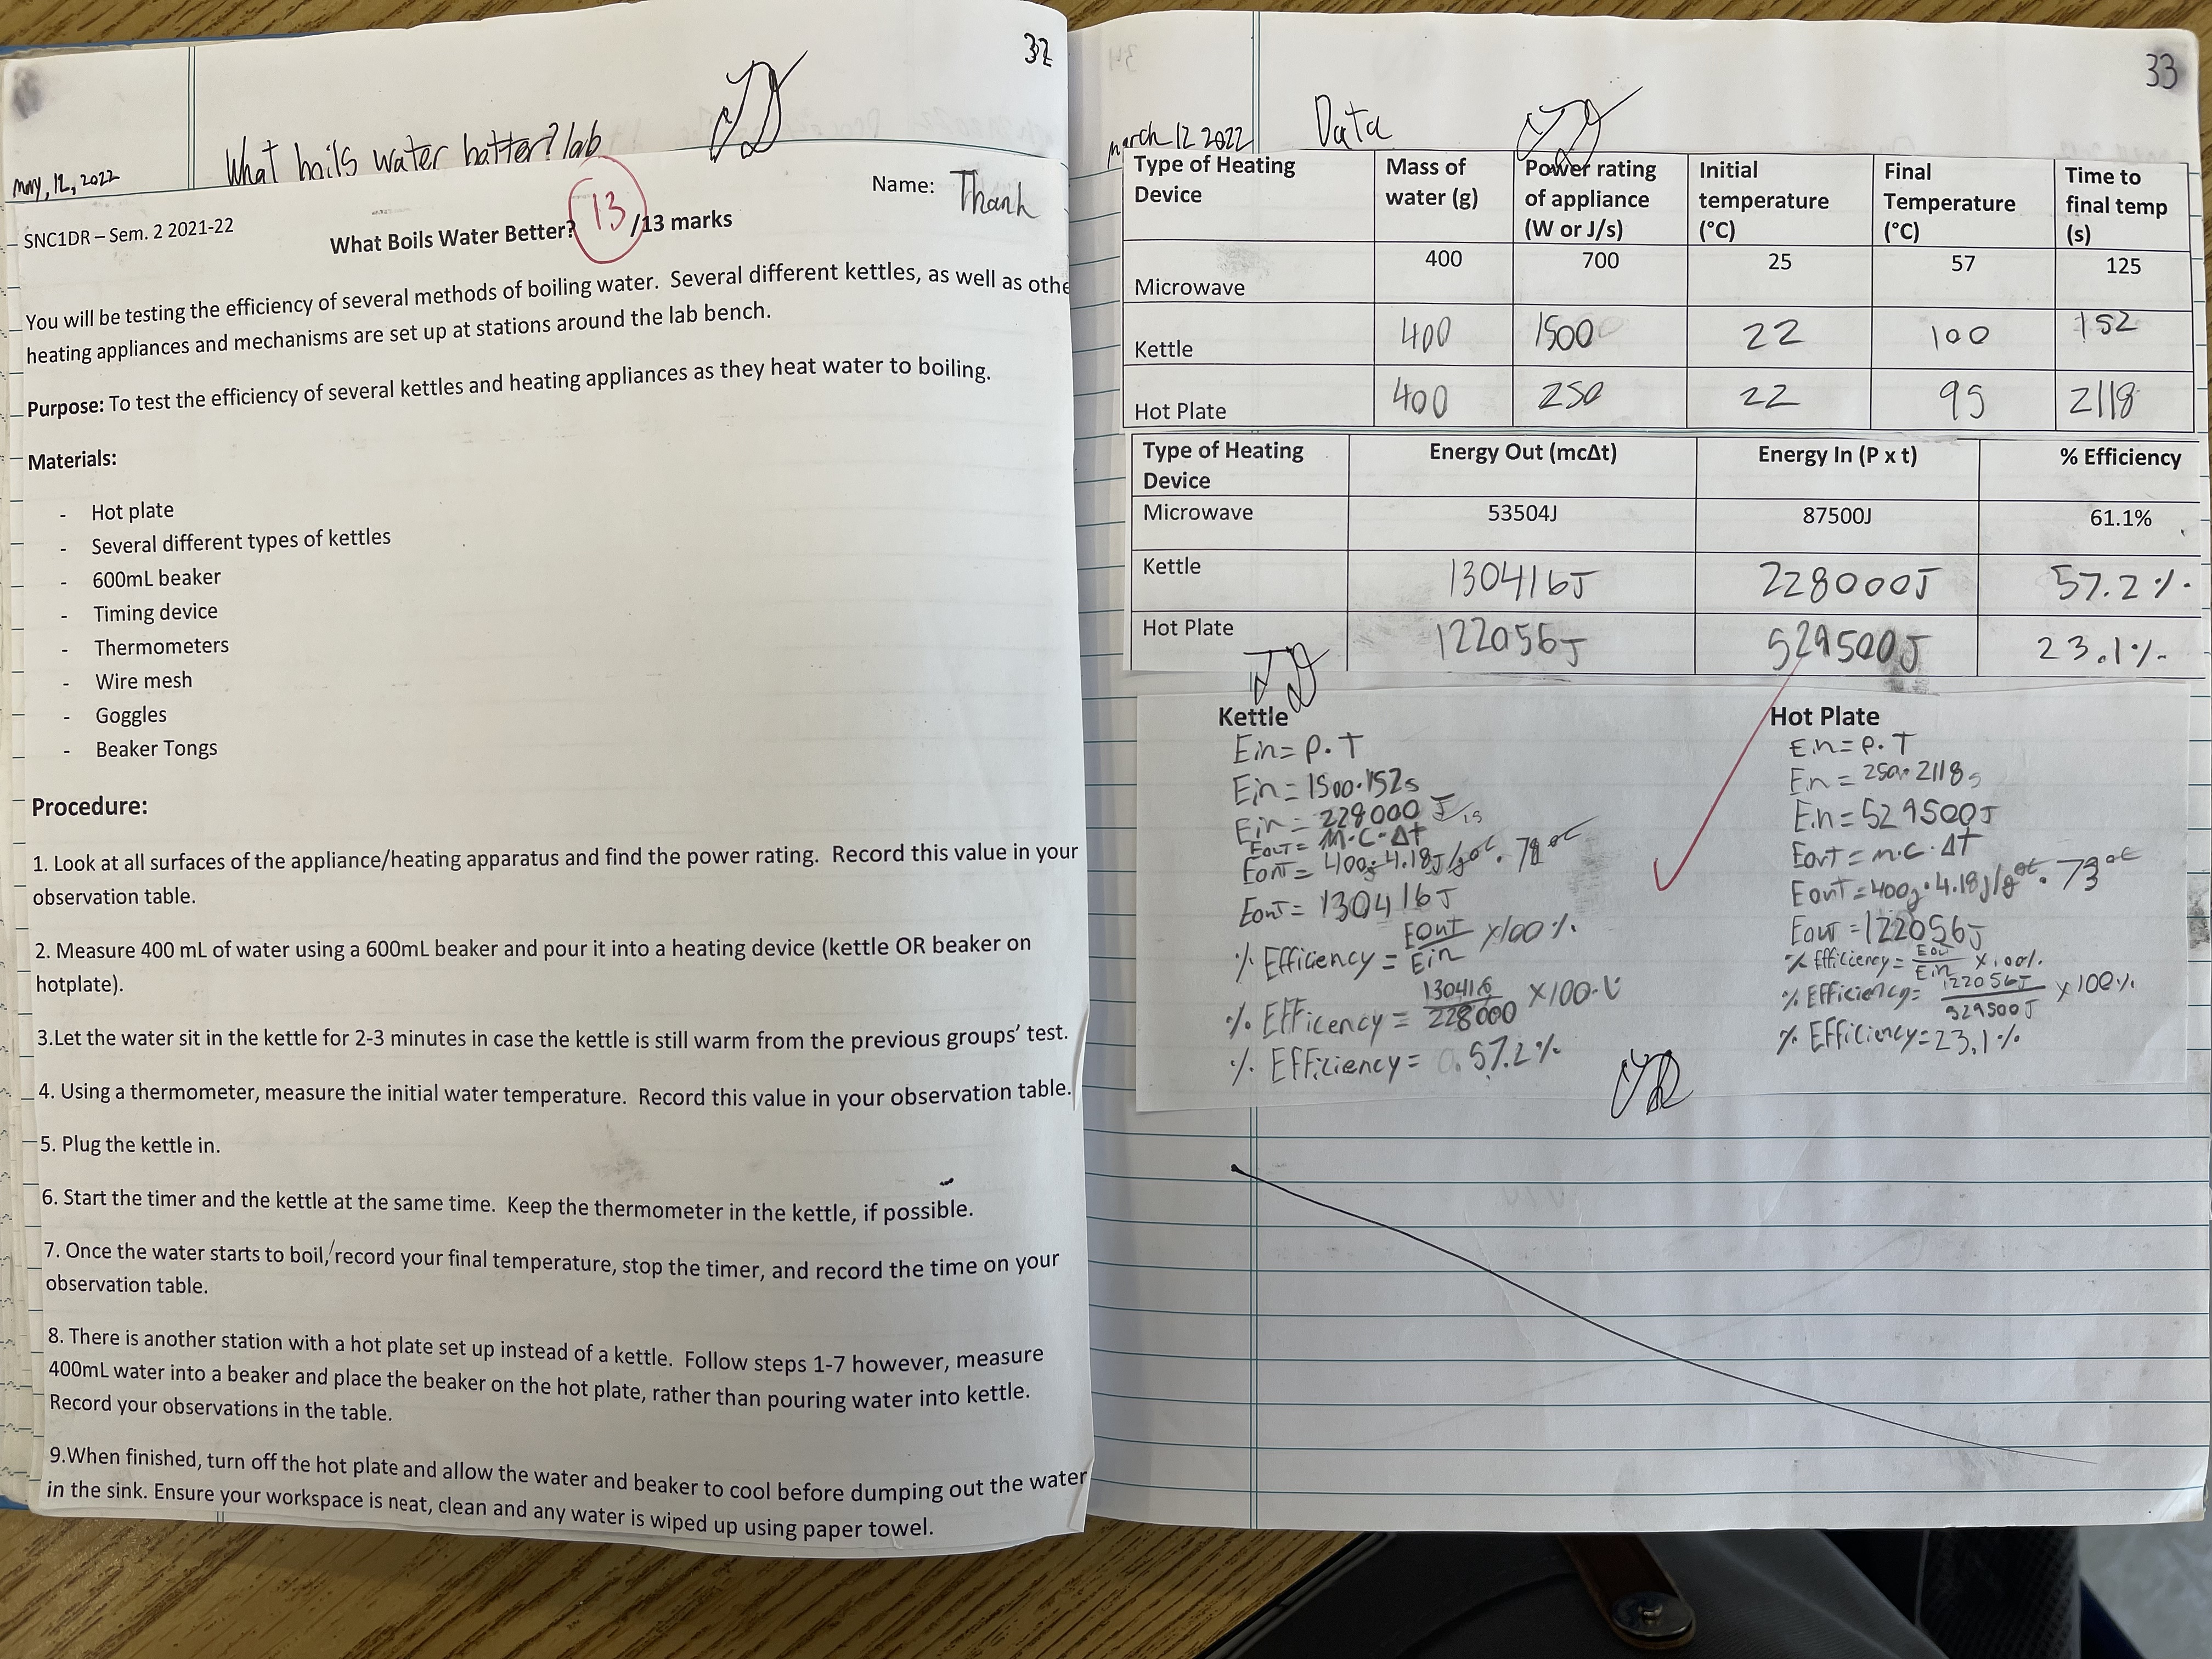 32
May, 12, 2022
What boils water batter? lab
Name: Thanh
SNC1DR – Sem. 2 2021-22
What Boils Water Better? 13 /13 marks
You will be testing the efficiency of several methods of boiling water. Several different kettles, as well as othe
heating appliances and mechanisms are set up at stations around the lab bench.
Purpose: To test the efficiency of several kettles and heating appliances as they heat water to boiling.
Materials:
- Hot plate
- Several different types of kettles
- 600mL beaker
- Timing device
- Thermometers
- Wire mesh
- Goggles
- Beaker Tongs
Procedure:
1. Look at all surfaces of the appliance/heating apparatus and find the power rating. Record this value in your
observation table.
2. Measure 400 mL of water using a 600mL beaker and pour it into a heating device (kettle OR beaker on
hotplate).
3.Let the water sit in the kettle for 2-3 minutes in case the kettle is still warm from the previous groups' test.
4. Using a thermometer, measure the initial water temperature. Record this value in your observation table.
5. Plug the kettle in.
6. Start the timer and the kettle at the same time. Keep the thermometer in the kettle, if possible.
7. Once the water starts to boil, record your final temperature, stop the timer, and record the time on your
observation table.
8. There is another station with a hot plate set up instead of a kettle. Follow steps 1-7 however, measure
400mL water into a beaker and place the beaker on the hot plate, rather than pouring water into kettle.
Record your observations in the table.
9.When finished, turn off the hot plate and allow the water and beaker to cool before dumping out the water
in the sink. Ensure your workspace is neat, clean and any water is wiped up using paper towel.
33
march 12 2022 Data
Type of Heating Device | Mass of water (g) | Power rating of appliance (W or J/s) | Initial temperature (°C) | Final Temperature (°C) | Time to final temp (s)
Microwave 400 700 25 57 125
Kettle 400 1500 22 100 152
Hot Plate 400 250 22 95 2118
Type of Heating Device | Energy Out (mcΔt) | Energy In (P x t) | % Efficiency
Microwave 53504J 87500J 61.1%
Kettle 130416J 228000J 57.2%
Hot Plate 122056J 529500J 23.1%
Kettle
Ein = P·T
Ein = 1500·152s
Ein = 228000 J/1s
Eout = M·C·Δt
Eout = 400g·4.18J/g°C·78°C
Eout = 130416J
% Efficiency = Eout/Ein ×100%
% Efficency = 130416/228000 ×100%
% Efficiency = 57.2%
Hot Plate
Ein = P·T
Ein = 250·2118s
Ein = 529500J
Eout = m·C·Δt
Eout = 400g·4.18J/g°C·73°C
Eout = 122056J
% Efficiency = Eout/Ein ×100%
% Efficiency = 122056J/529500J ×100%
% Efficiency = 23.1%